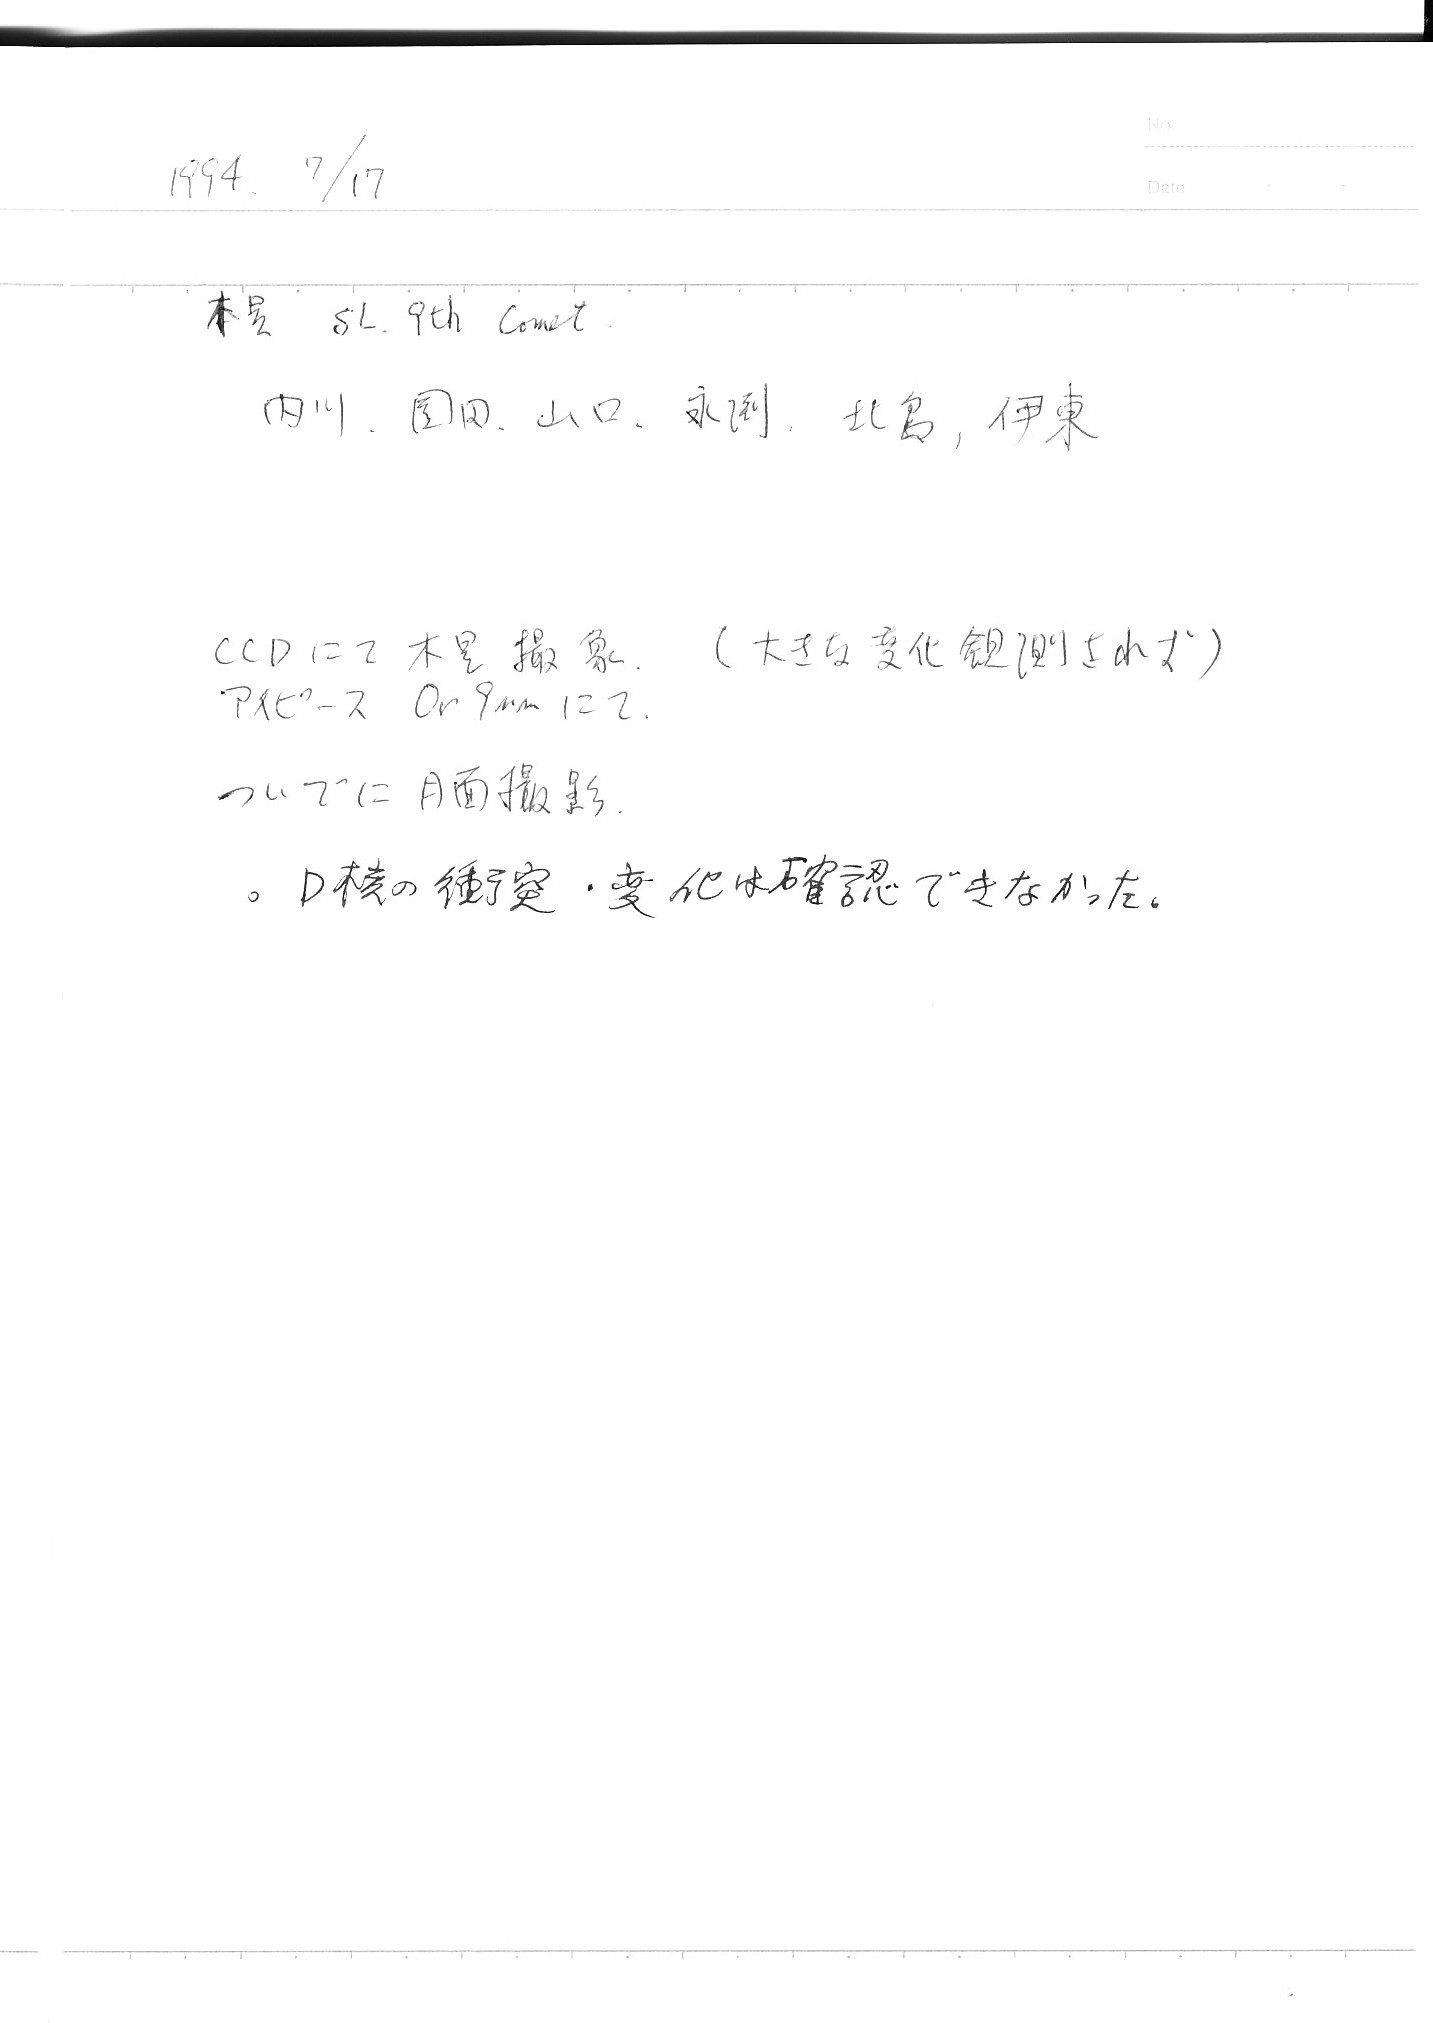 No.
Date
1994. 7/17
木星 SL. 9th Comet.
内川、園田、山口、永渕、北島, 伊東
CCDにて木星撮象. (大きな変化観測されず)
アイピース Or 9mmにて.
ついでに月面撮影.
。D核の衝突・変化は確認できなかった。